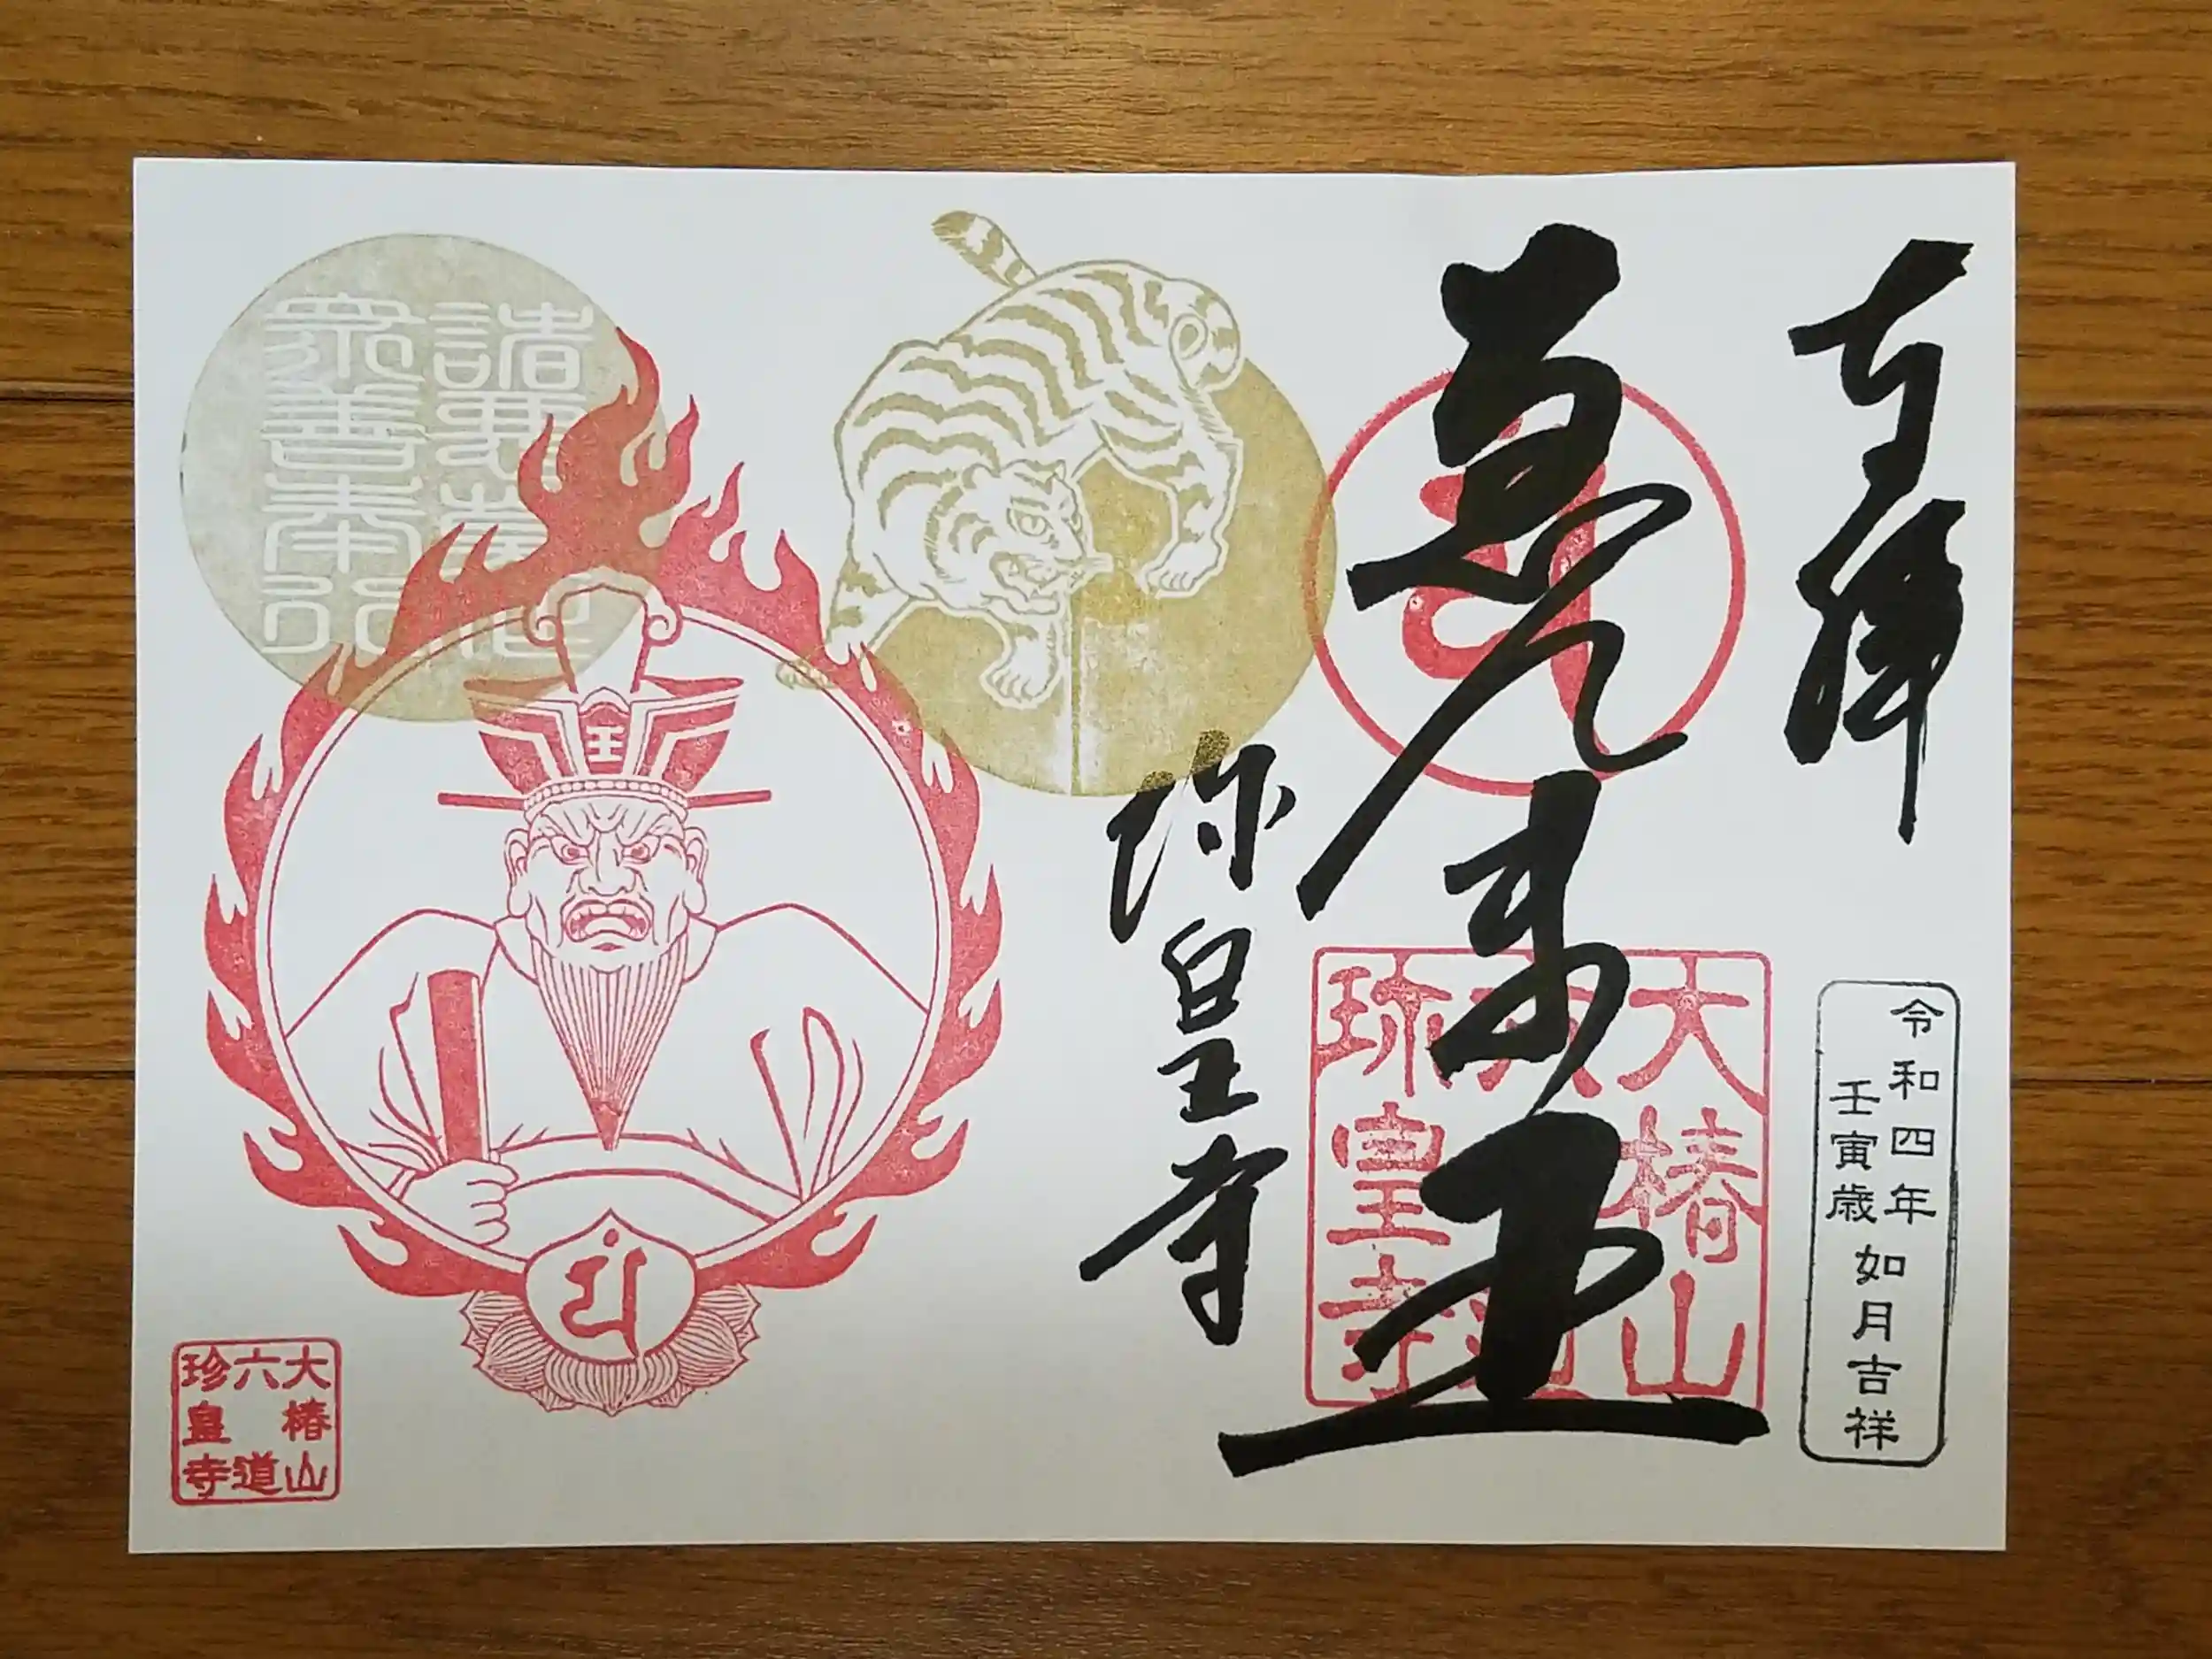 奉拝
令和四年
壬寅歳
如月吉祥
大椿山
六道
珎皇寺
珎皇寺
諸悪莫作
衆善奉行
王
大椿山
六道
珍皇寺